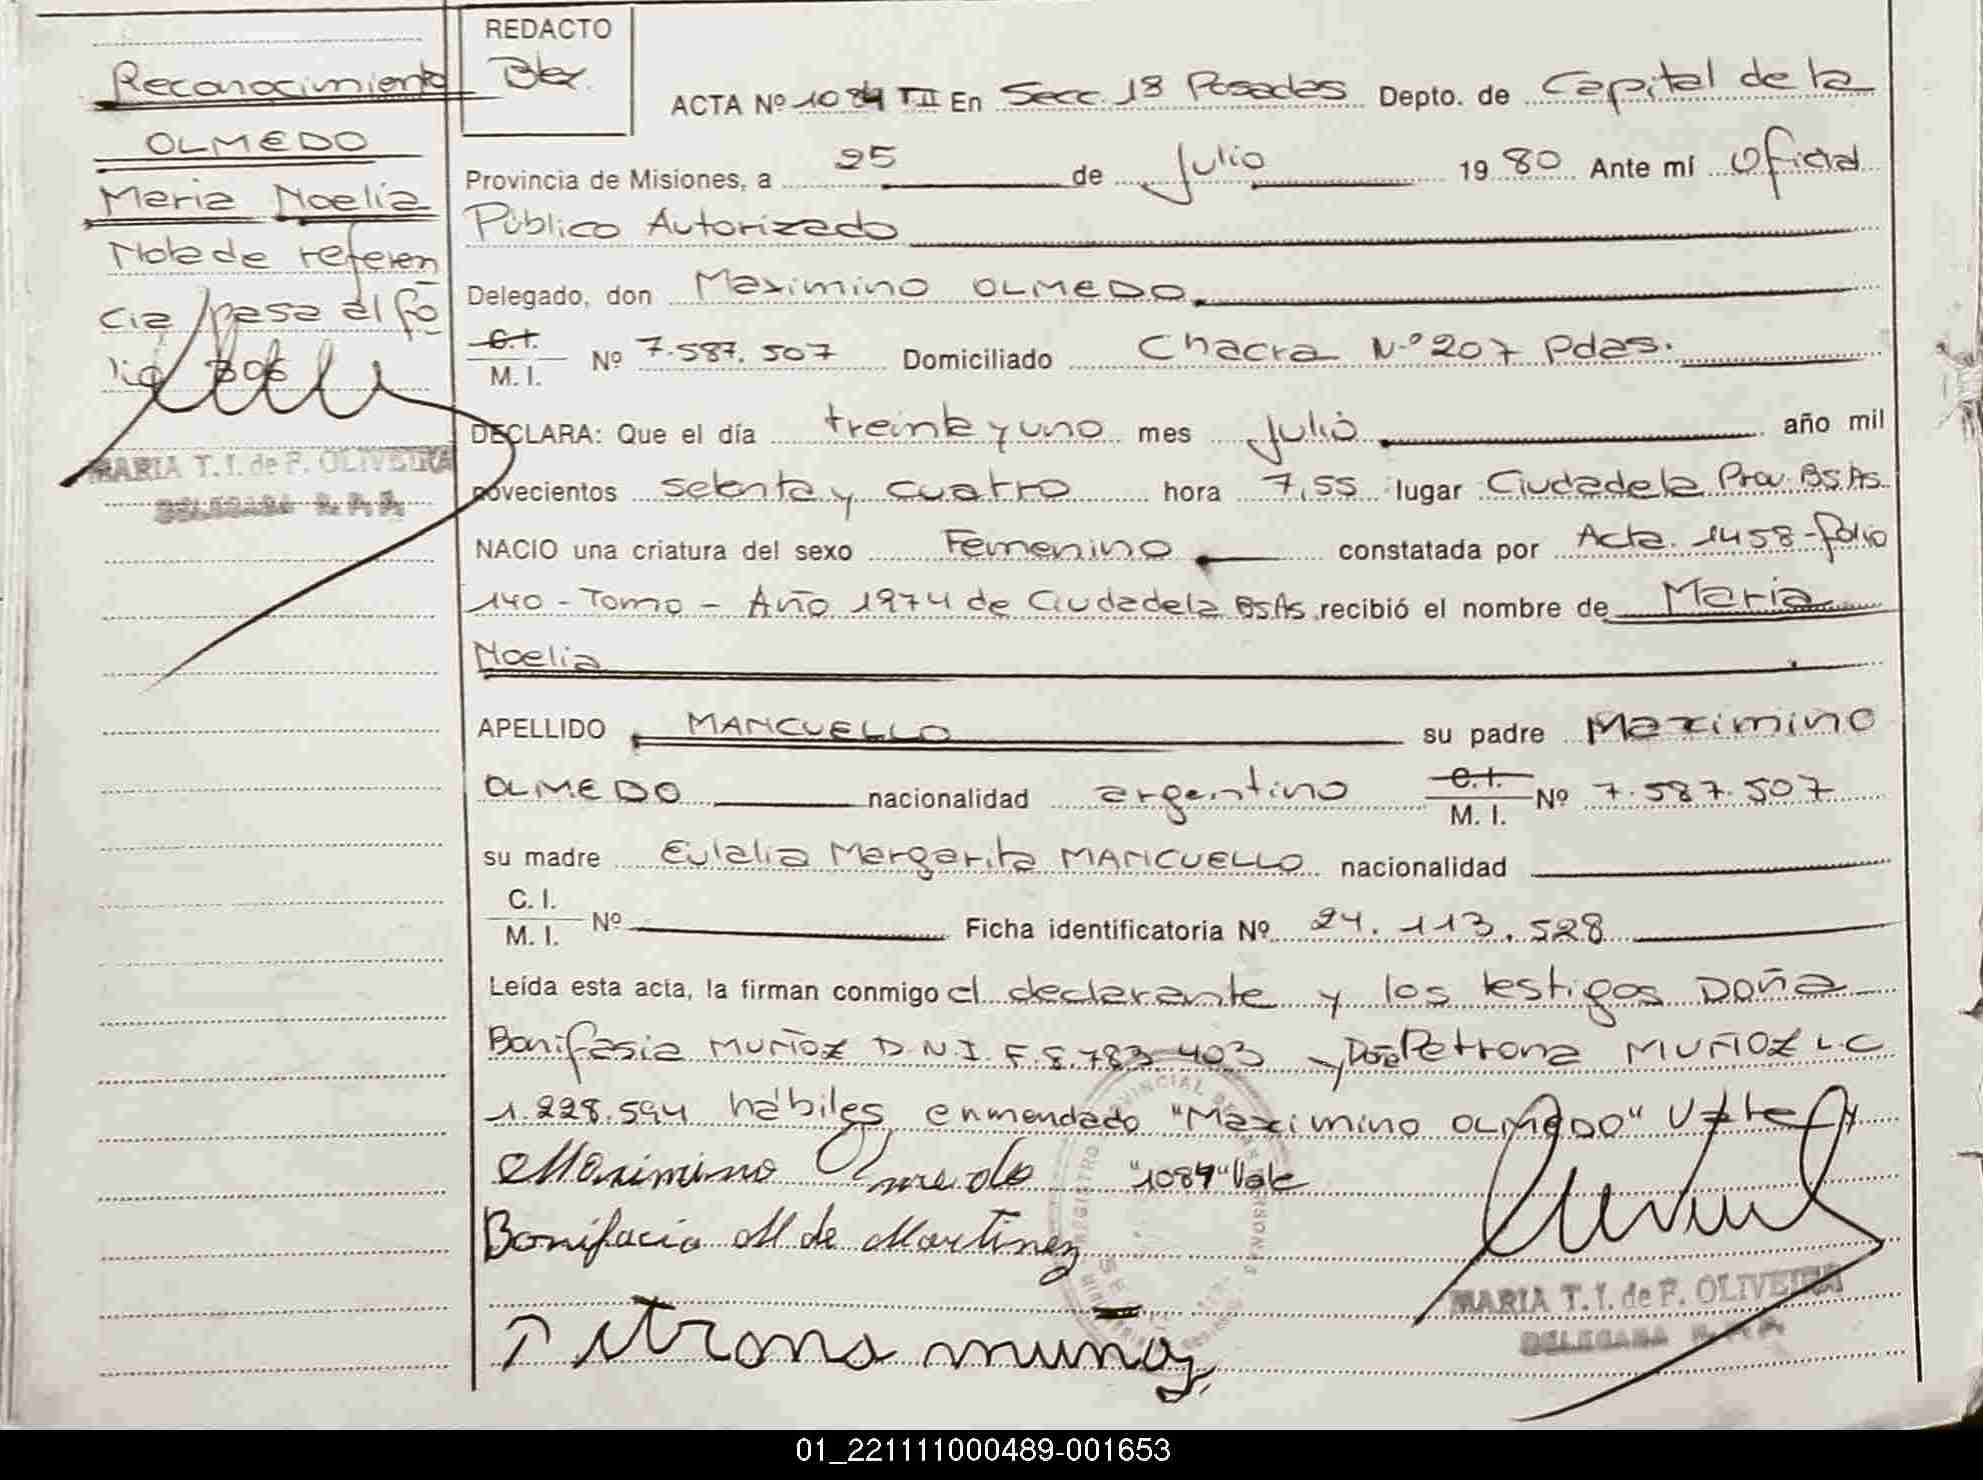 Reconocimiento
OLMEDO
Maria Noelia
Nota de referen
cia pasa al fo
lio 306
MARIA T. I. de F. OLIVEIRA
DELEGADA R. P. P.
REDACTO
ACTA Nº 1084 T II En Secc. 1ª Posadas Depto. de Capital de la
Provincia de Misiones, a 25 de Julio 19 80 Ante mí Oficial
Público Autorizado
Delegado, don Maximino OLMEDO
C.I. M. I. Nº 7.587.507 Domiciliado Chacra Nº 207 Pdas.
DECLARA: Que el día treinta y uno mes Julio año mil
novecientos setenta y cuatro hora 7,55 lugar Ciudadela Prov. Bs As.
NACIO una criatura del sexo Femenino constatada por Acta 1458-folio
140 - Tomo - Año 1974 de Ciudadela Bs As recibió el nombre de Maria
Noelia
APELLIDO MANCUELLO su padre Maximino
OLMEDO nacionalidad argentino C.I. M. I. Nº 7.587.507
su madre Eulalia Margarita MANCUELLO nacionalidad
C. I. M. I. Nº Ficha identificatoria Nº 24.113.528
Leída esta acta, la firman conmigo el declarante y los testigos Doña
Bonifasia MUÑOZ D.N.I. F.8.783.403 y Doña Petrona MUÑOZ L C
1.228.594 hábiles enmendado "Maximino OLMEDO" Vale y
Maximino Olmedo "1084" Vale
Bonifacia M de Martinez
MARIA T. I. de F. OLIVEIRA
DELEGADA R. P. P.
Petrona muñoz
01_221111000489-001653